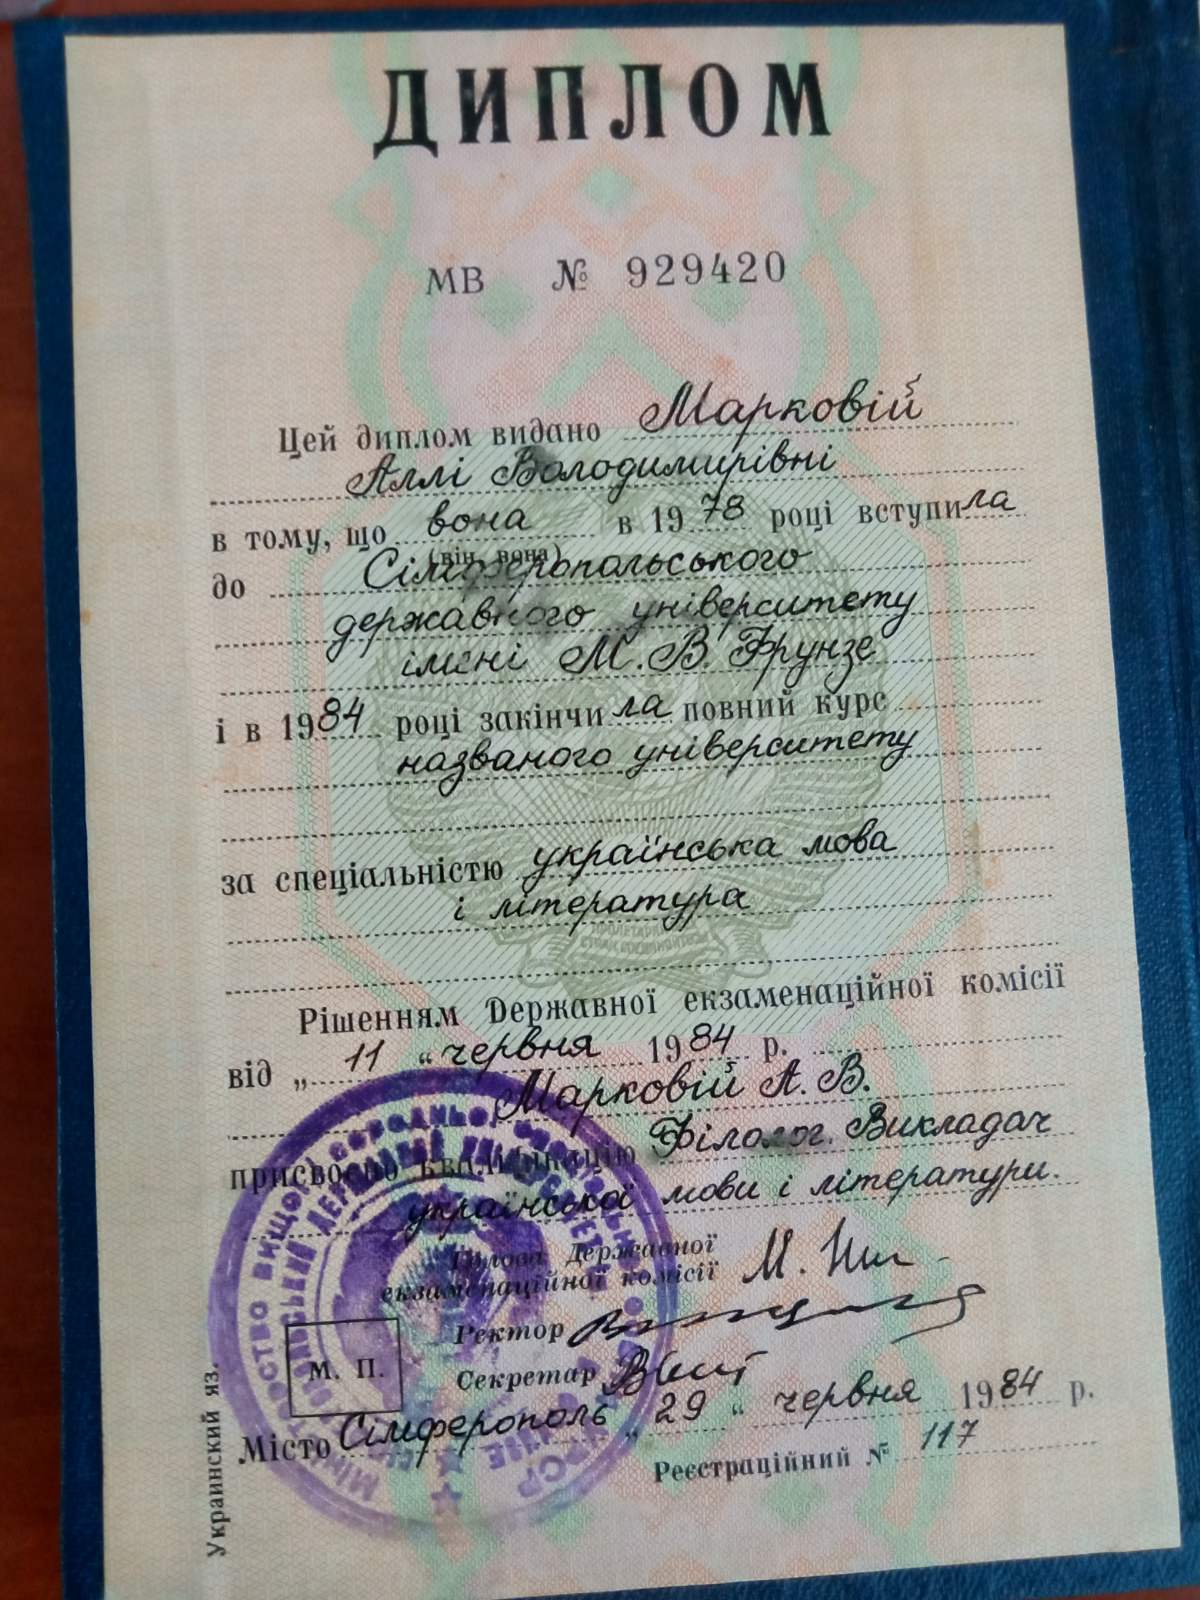 ДИПЛОМ
МВ № 929420
Цей диплом видано Марковій
Аллі Володимирівні
в тому, що вона в 1978 році вступила
(він, вона)
до Сімферопольського
державного університету
імені М. В. Фрунзе
і в 1984 році закінчила повний курс
названого університету
за спеціальністю українська мова
і література
Рішенням Державної екзаменаційної комісії
від „ 11 “ червня 1984 р.
Марковій А. В.
присвоєно кваліфікацію Філолог. Викладач
української мови і літератури.
Голова Державної
екзаменаційної комісії
Ректор
Секретар
М. П.
Місто Сімферополь „ 29 “ червня 1984 р.
Реєстраційний № 117
Украинский яз.